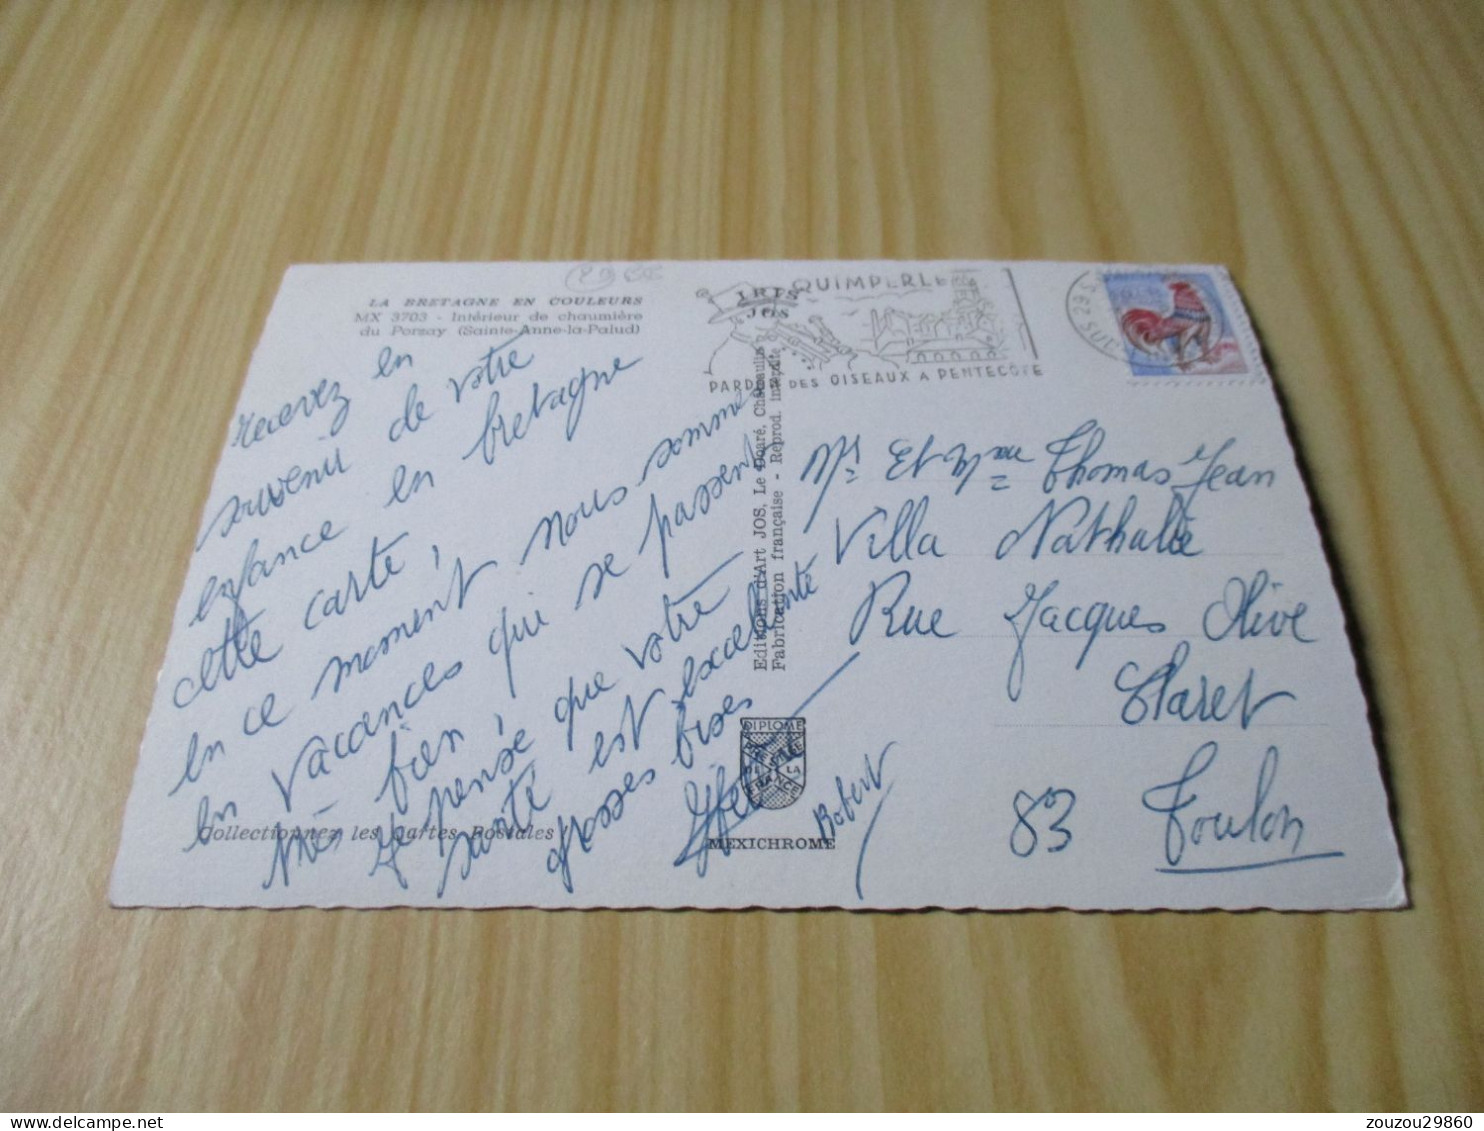 LA BRETAGNE EN COULEURS
MX 3703 - Intérieur de chaumière
du Porzay (Sainte-Anne-la-Palud)
recevez en
souvenir de votre
enfance en bretagne
cette carte,
en ce moment nous somme
en vacances qui se passent
très bien, 
Je pense que votre
santé est excellente
grosses bises
Robert
Collectionnez les Cartes Postales !
IRIS
JOS
QUIMPERLE
PARDON DES OISEAUX A PENTECOTE
29 S
Editions d'Art JOS, Le Doaré, Châteaulin
Fabrication française - Reprod. interdite
DIPLOME
PRESTIGE
DE LA
FRANCE
MEXICHROME
Mr Et Mme Thomas Jean
Villa Nathalie
Rue Jacques Olive
Claret
83 Toulon
zouzou29860